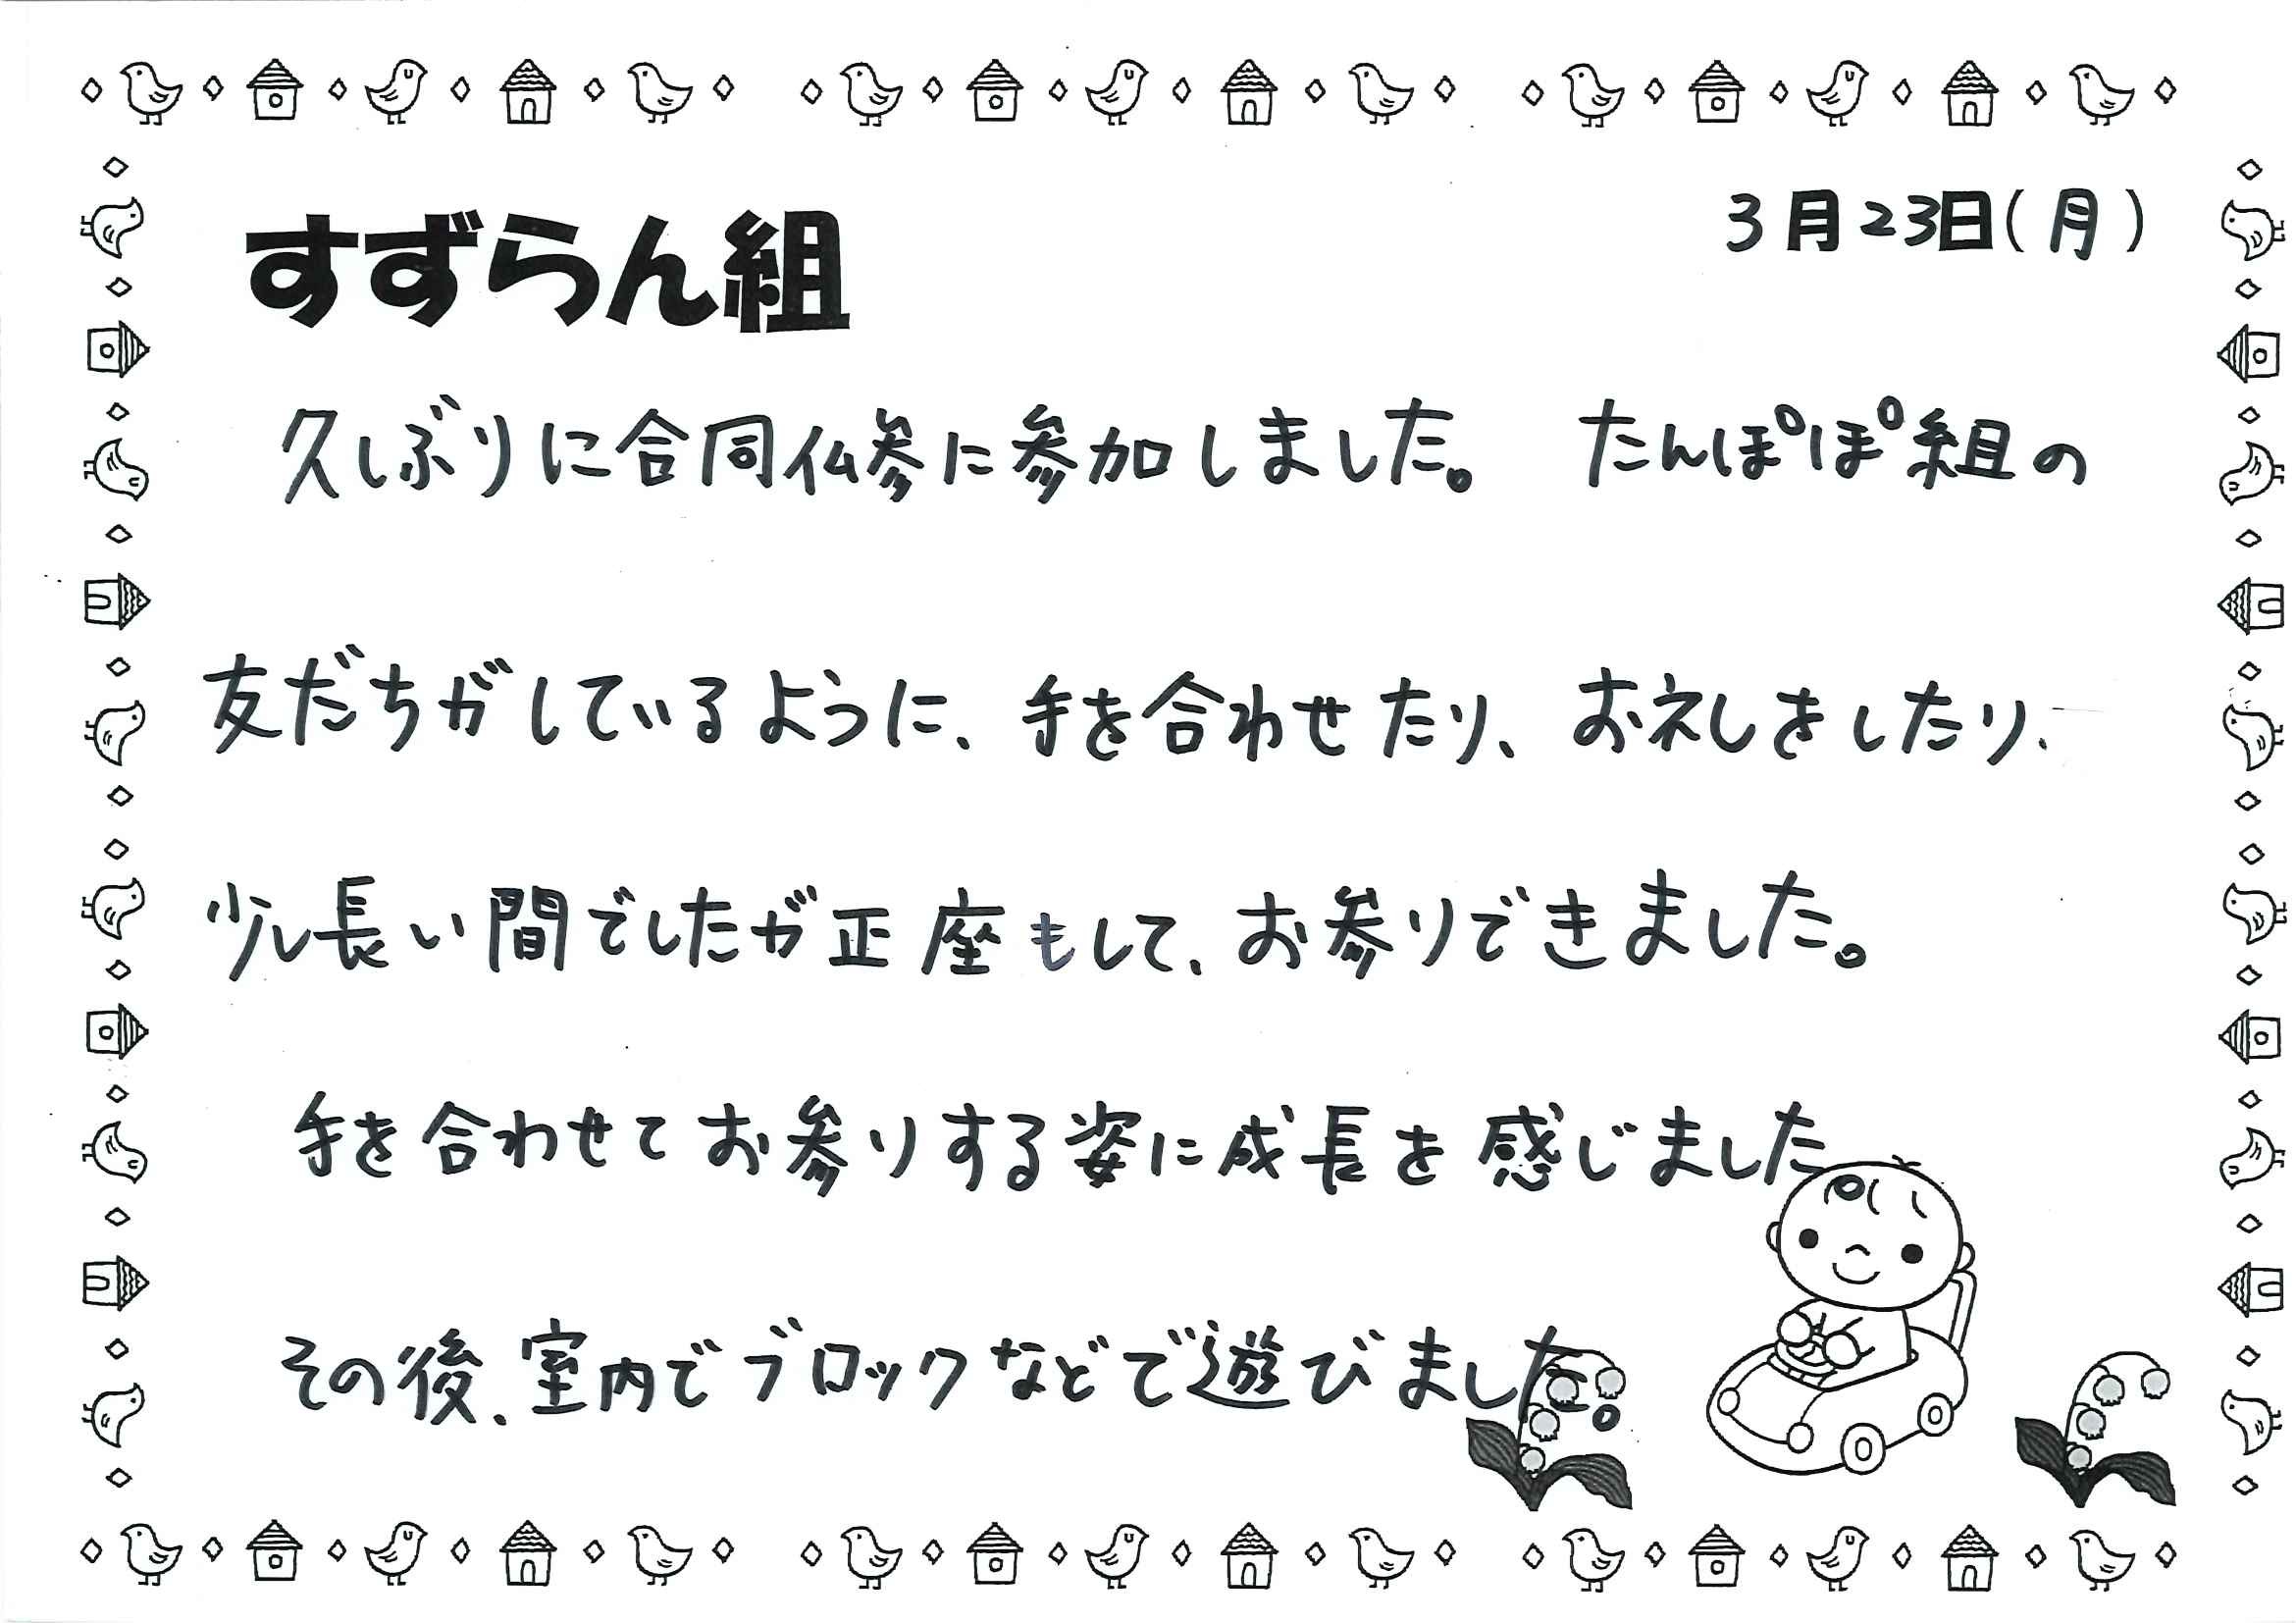 3月23日(月)
すずらん組
久しぶりに合同仏参に参加しました。 たんぽぽ組の
友だちがしているように、手を合わせたり、お礼しをしたり、
少し長い間でしたが正座もして、お参りできました。
手を合わせてお参りする姿に成長を感じました。
その後、室内でブロックなどで遊びました。